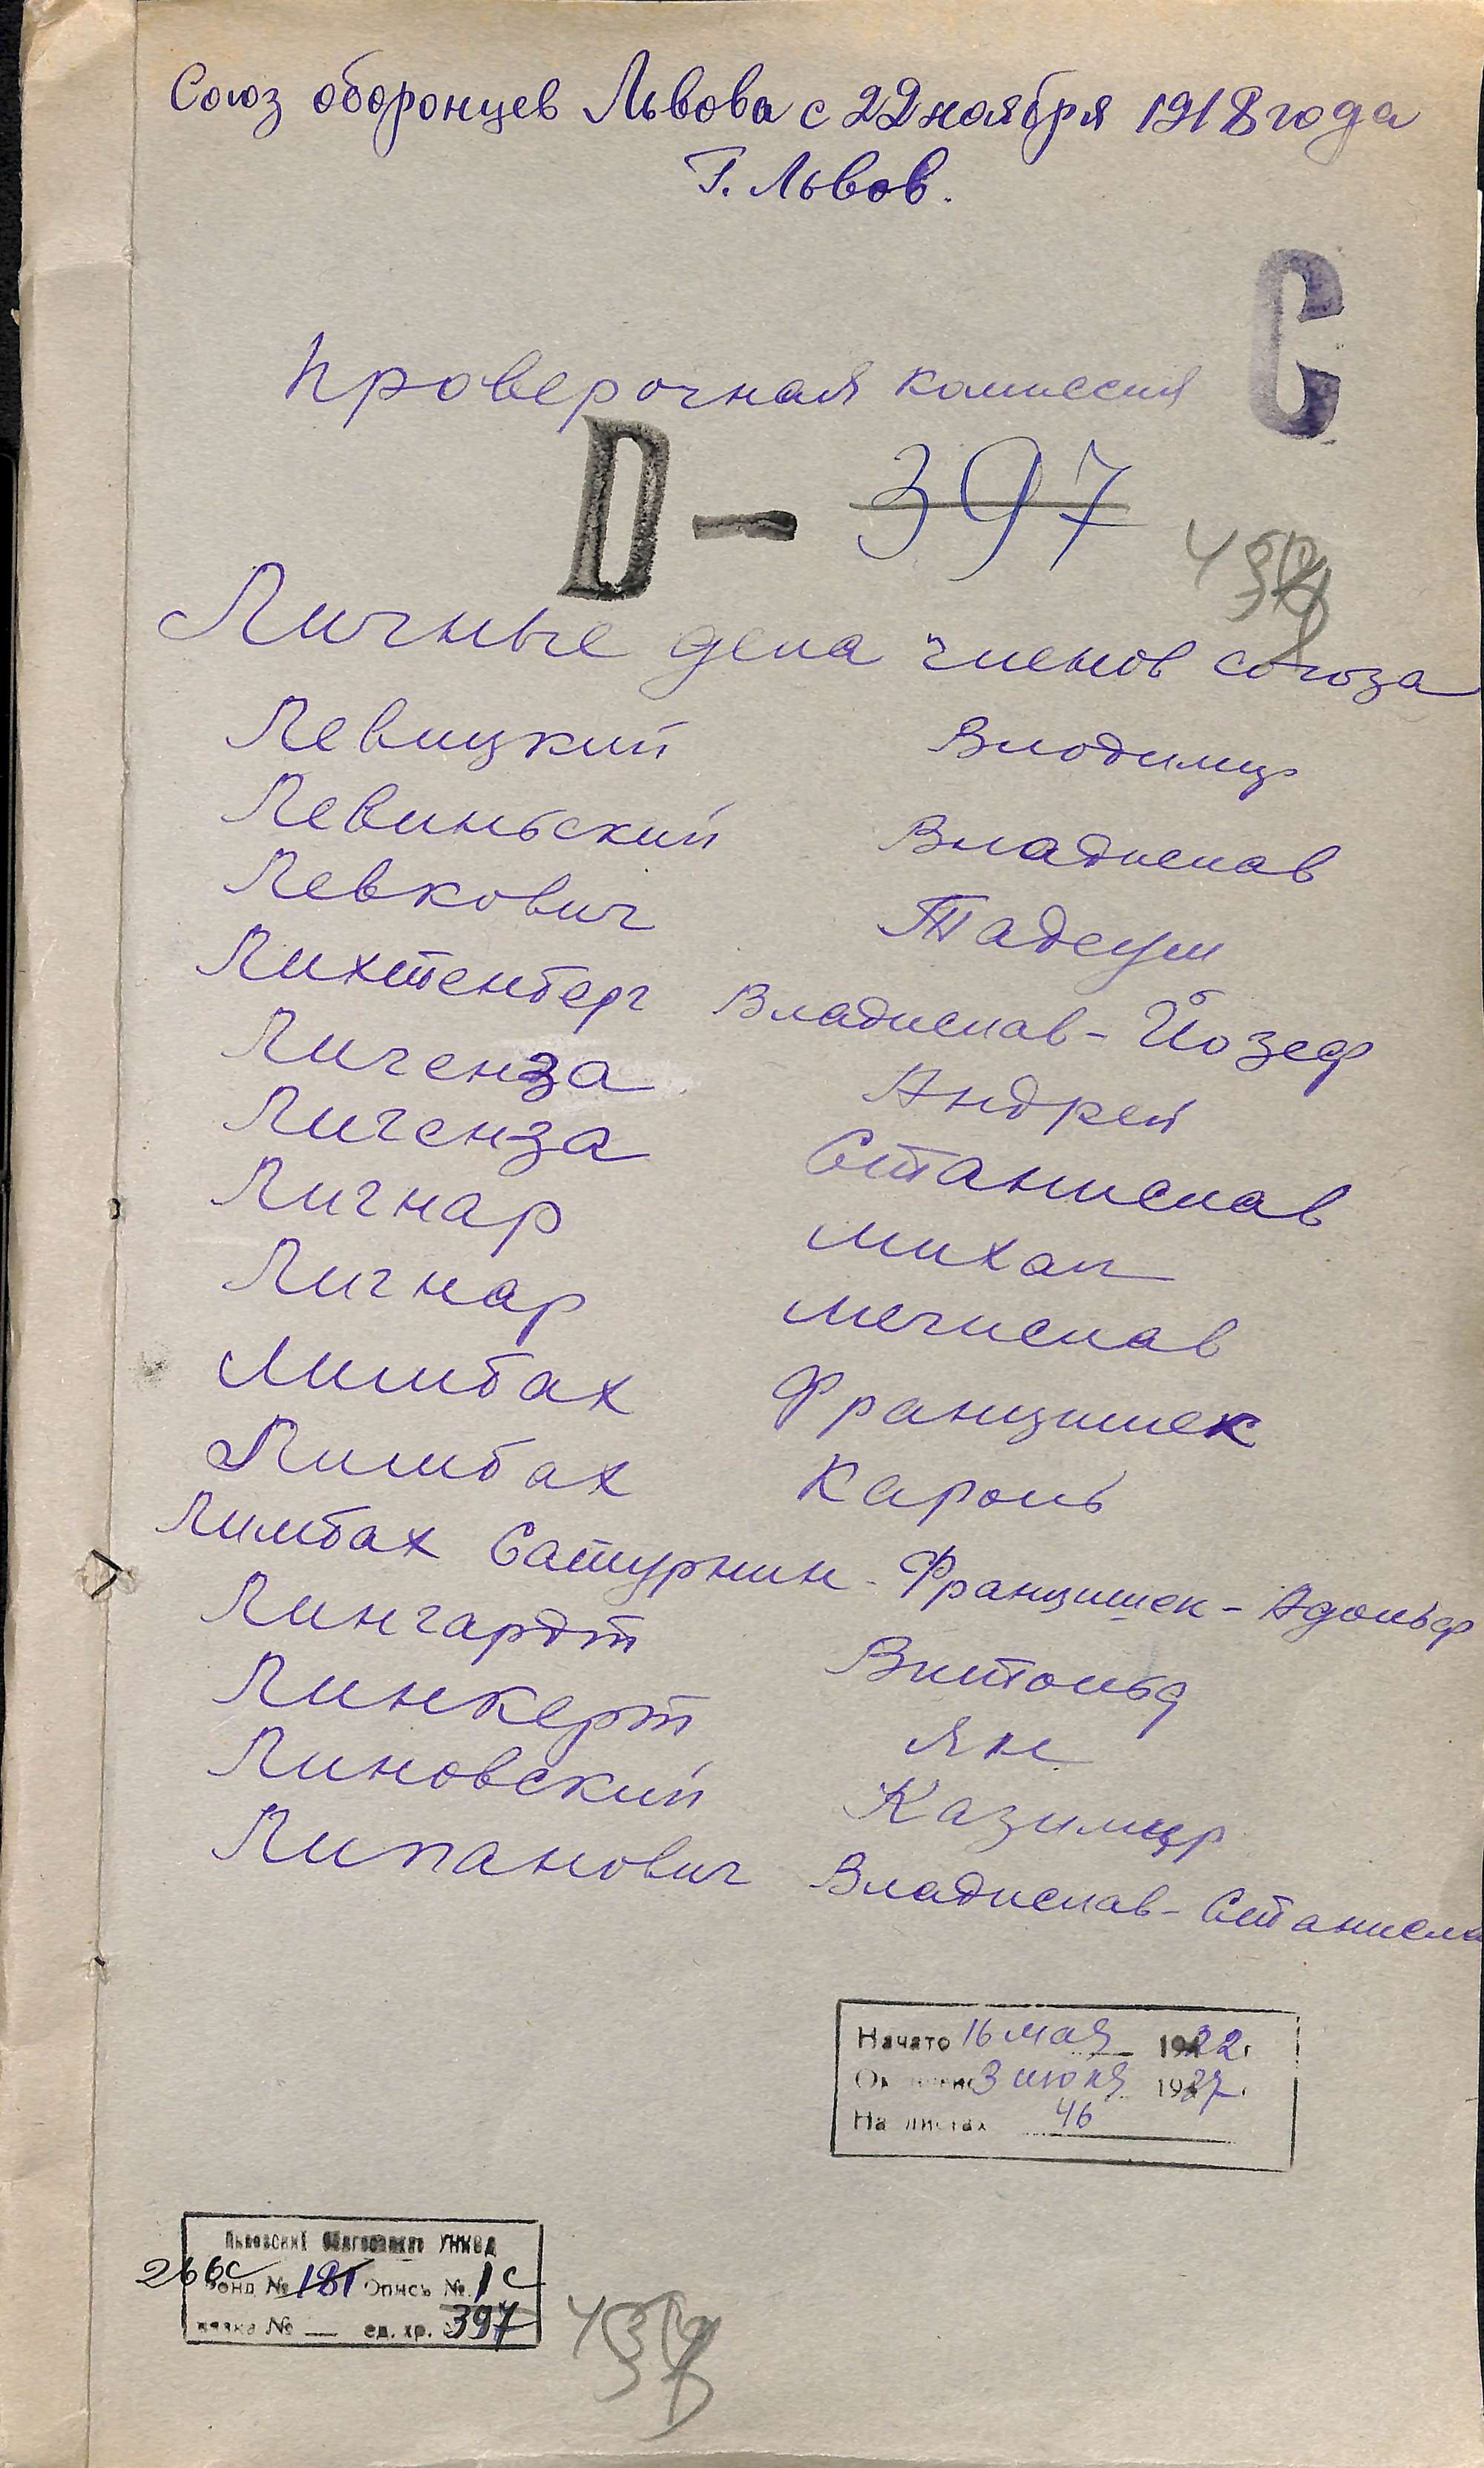 Союз оборонцев Львова с 22 ноября 1918 года
Г. Львов.
С
Проверочная комиссия
D — 397
Личные дела членов союза
Левицкий Влодимир
Левиньский Владислав
Левкович Тадеуш
Лихтенберг Владислав-Йозеф
Лигенза Андрей
Лигенза Станислав
Лигнар Михал
Лигнар Мечислав
Лимбах Францишек
Лимбах Кароль
Лимбах Сатурнин-Францишек-Адольф
Лингардт Витольд
Линкерт Ян
Линовский Казимир
Липанович Владислав-Станисла
Начато 16 мая 1922 г.
3 июня 1937 г.
На листах 46
Львовский Облгосархив УНКВД
266с Фонд № 181 Опись № 1с
вязка № — ед. хр. 397